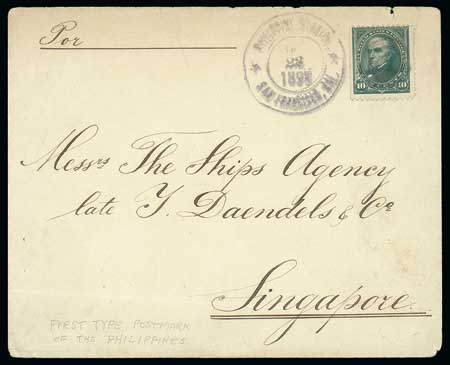 Por
PHILIPPINE STATION
22
1898
SAN FRANCISCO, CAL.
10 10
Messrs The Ships Agency
late J. Daendels & Co
Singapore.
FIRST TYPE, POSTMARK
OF THE PHILIPPINES